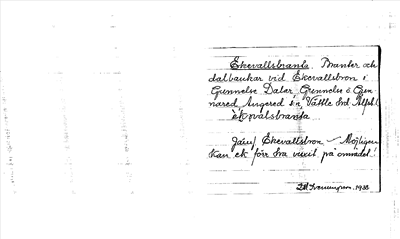 Ekevallsbranta. Branter och
dalbankar vid Ekevallsbron i
Gunnelse Dalar, Gunnelse o Gun
nared, Angered sn, Vättle hd, Älfsb l.
Jämf. Ekevallsbron — Möjligen
kan ek förr ha växit på området!
1938